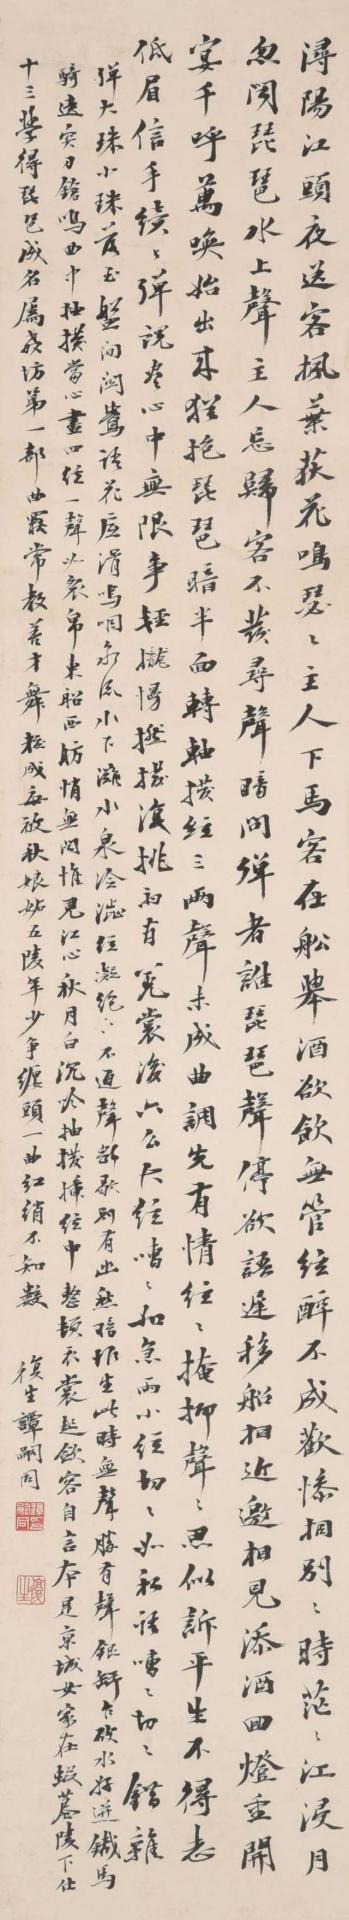 潯陽江頭夜送客楓葉荻花鳴瑟〻主人下馬客在舩舉酒欲飲無管絃醉不成歡慘相別〻時茫〻江浸月
忽聞琵琶水上聲主人忘歸客不發尋聲暗問彈者誰琵琶聲停欲語遲移船相近邀相見添酒回燈重開
宴千呼萬喚始出來猶抱琵琶暗半面轉軸撥絃三兩聲未成曲調先有情絃〻掩抑聲〻思似訴平生不得志
低眉信手續〻彈說盡心中無限事輕攏慢撚撥復挑初有霓裳後六么大絃嘈〻如急雨小絃切〻如私語嘈〻切〻錯雜
彈大珠小珠落玉盤間関鶯語花底滑嗚咽泉流水下灘水泉冷澁絃凝絕〻不通聲漸歇別有幽愁暗恨生此時無聲勝有聲銀缾乍破水漿迸鐵馬
騎遠突刀鎗鳴曲中抽撥當心畫四絃一聲如裂帛東船西舫悄無聞惟見江心秋月白沉吟抽撥揷絃中整頓衣裳起飲客自言本是京城女家在蝦蟇陵下住
十三學得琵琶成名属教坊第一部曲罷常教善才舞粧成每被秋娘妬五陵年少争纏頭一曲紅綃不知數
復生譚嗣同
譚嗣同
復生